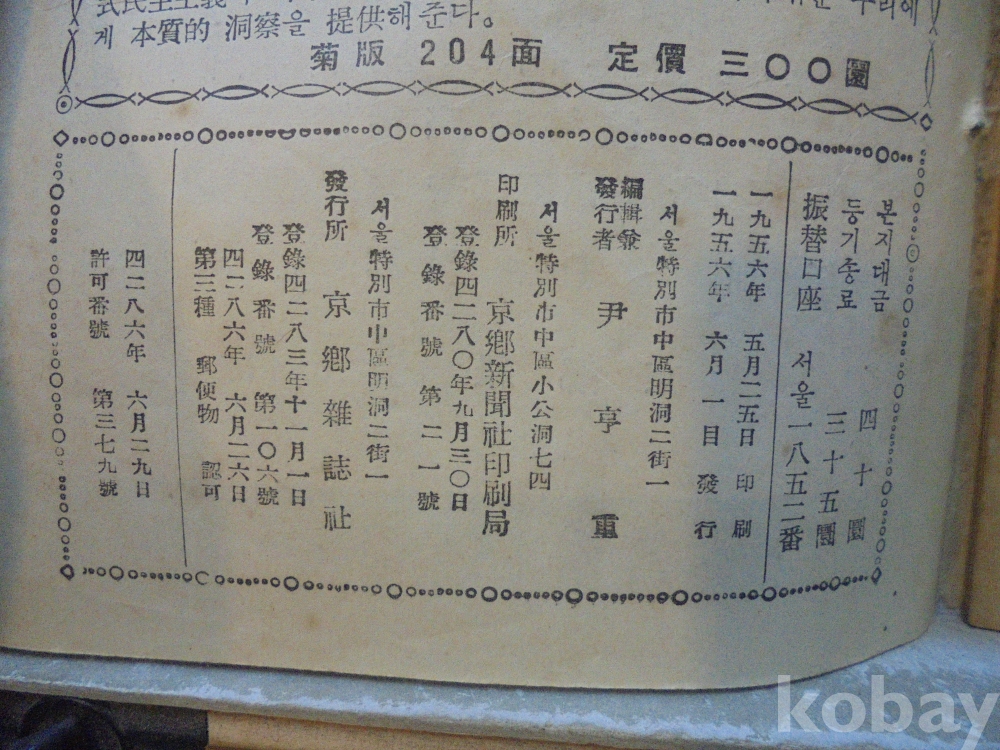 게 本質的 洞察을 提供해 준다。
菊版 204面 定價 三〇〇圜
본지대금 四十圜
등기종료 三十五圜
振替口座 서울一八五二番
一九五六年 五月二五日 印刷
一九五六年 六月一日 發行
서울特別市中區明洞二街一
編輯兼
發行者 尹亨重
서울特別市中區小公洞七四
印刷所 京鄕新聞社印刷局
登錄四二八〇年九月三〇日
登錄番號 第二一號
서울特別市中區明洞二街一
發行所 京鄕雜誌社
登錄四二八三年十一月一日
登錄番號 第一〇六號
四二八六年 六月二六日
第三種 郵便物 認可
四二八六年 六月二九日
許可番號 第三七九號
kobay